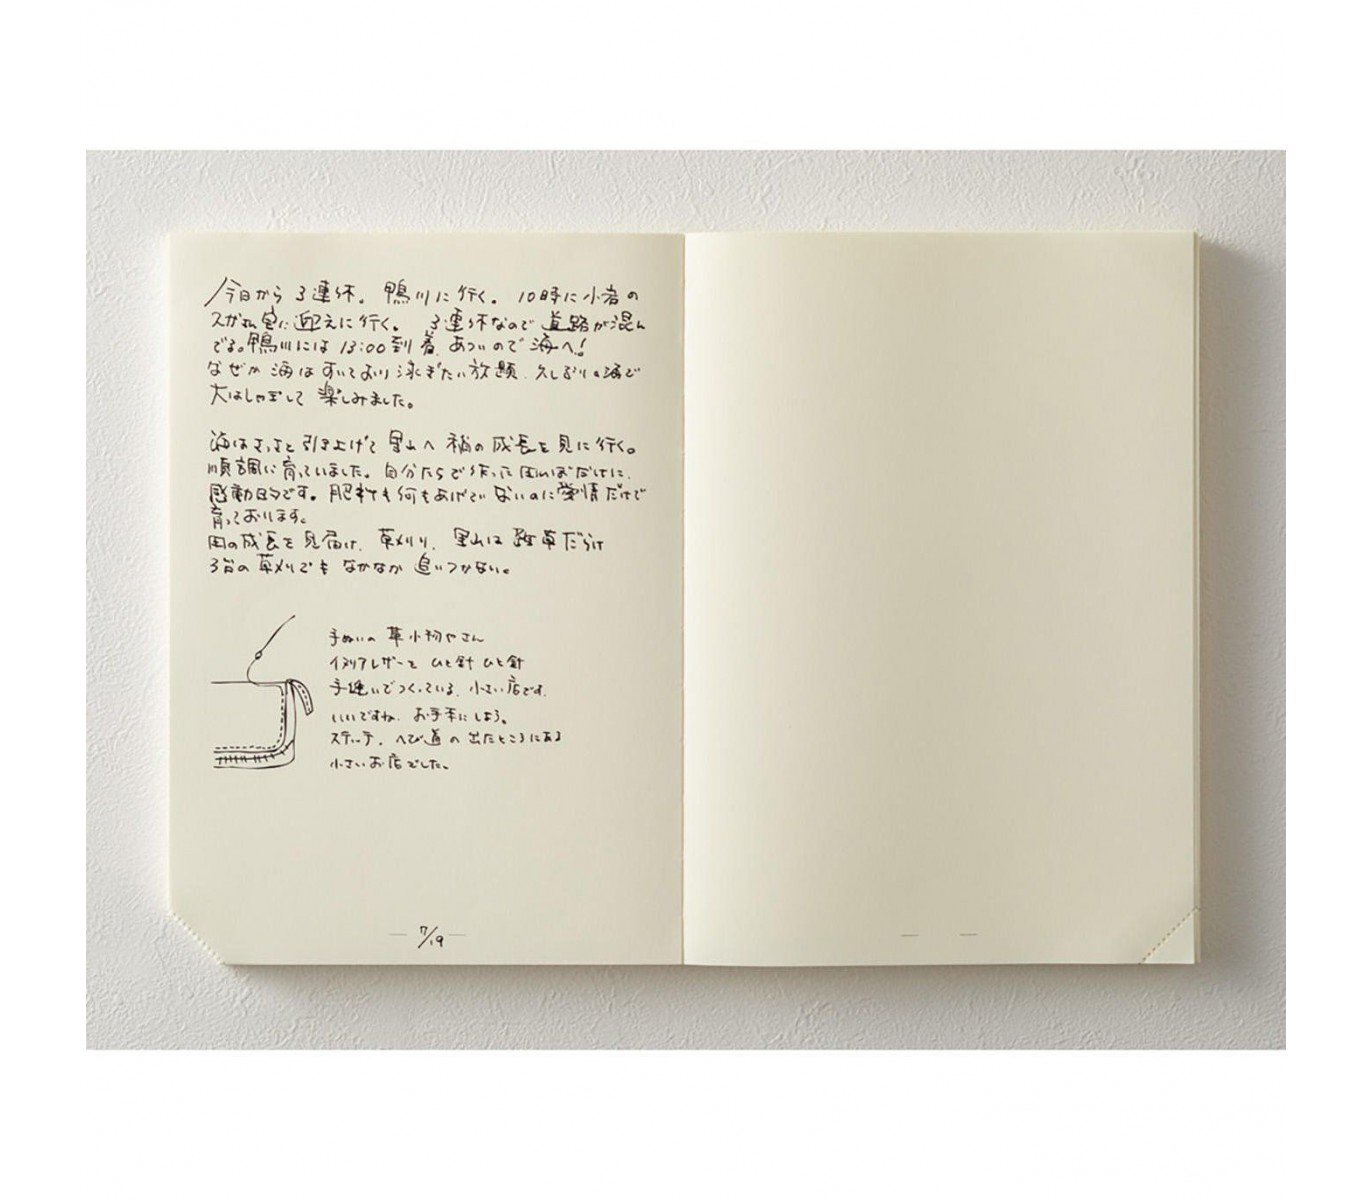 今日から3連休。鴨川に行く。10時に小岩の
スガさん宅に迎えに行く。3連休なので道路が混ん
でる。鴨川には13:00到着、あついので海へ!
なぜか海はすいており泳ぎたい放題、久しぶりの海で
大はしゃぎして楽しみました。
海はさっさと引き上げて里山へ稲の成長を見に行く。
順調に育っていました。自分たちで作った田んぼだけに、
感動的です。肥料も何もあげてないのに愛情だけで
育っております。
田の成長を見届け、草刈り、里山は雑草だらけ
3台の草刈でもなかなか追いつかない。
手ぬいの革小物やさん
イタリアレザーを ひと針 ひと針
手縫いでつくっている、小さい店です。
いいですね、お手本にしよう。
ステッチ、へび道の出たところにある
小さいお店でした。
7/19